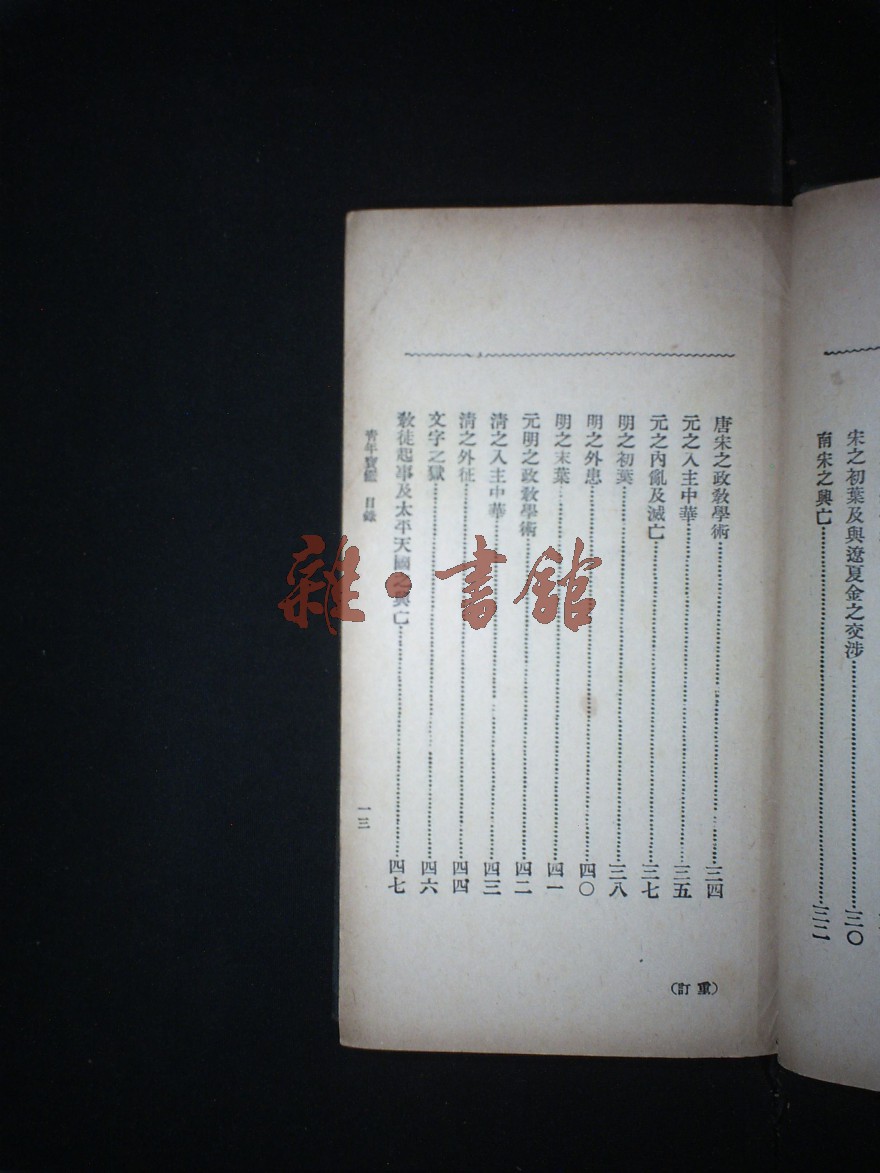 宋之初葉及與遼夏金之交涉三〇
南宋之興亡三二
唐宋之政教學術三四
元之入主中華三五
元之內亂及滅亡三七
明之初葉三八
明之外患四〇
明之末葉四一
元明之政教學術四二
清之入主中華四三
清之外征四四
文字之獄四六
教徒起事及太平天國之興亡四七
青年寶鑑 目錄 一三
(重訂)
雜·書館